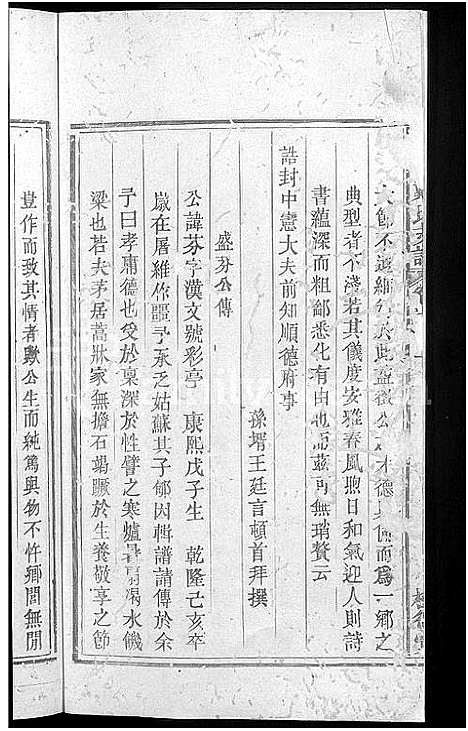 大節不逾細行於此益徵公之才德具備而爲一鄉之
典型者不淺若其儀度安雅春風煦日和氣迎人則詩
書蘊深而粗鄙悉化有由也而茲再無瑣贅云
誥封中憲大夫前知順德府事
孫壻王廷言頓首拜撰
盛芬公傳
公諱芬字漢文號彩亭 康熙戊子生 乾隆己亥卒
歲在屠維作噩予承乏姑蘇其子郇因輯譜請傳於余
予曰孝庸德也受於稟深於性譬之寒爐暑扇渴水饑
粱也若夫茅居蒿牀家無擔石竭蹶於生養敬享之節
豈作而致其情者歟公生而純篤與物不忤鄉閭無閒